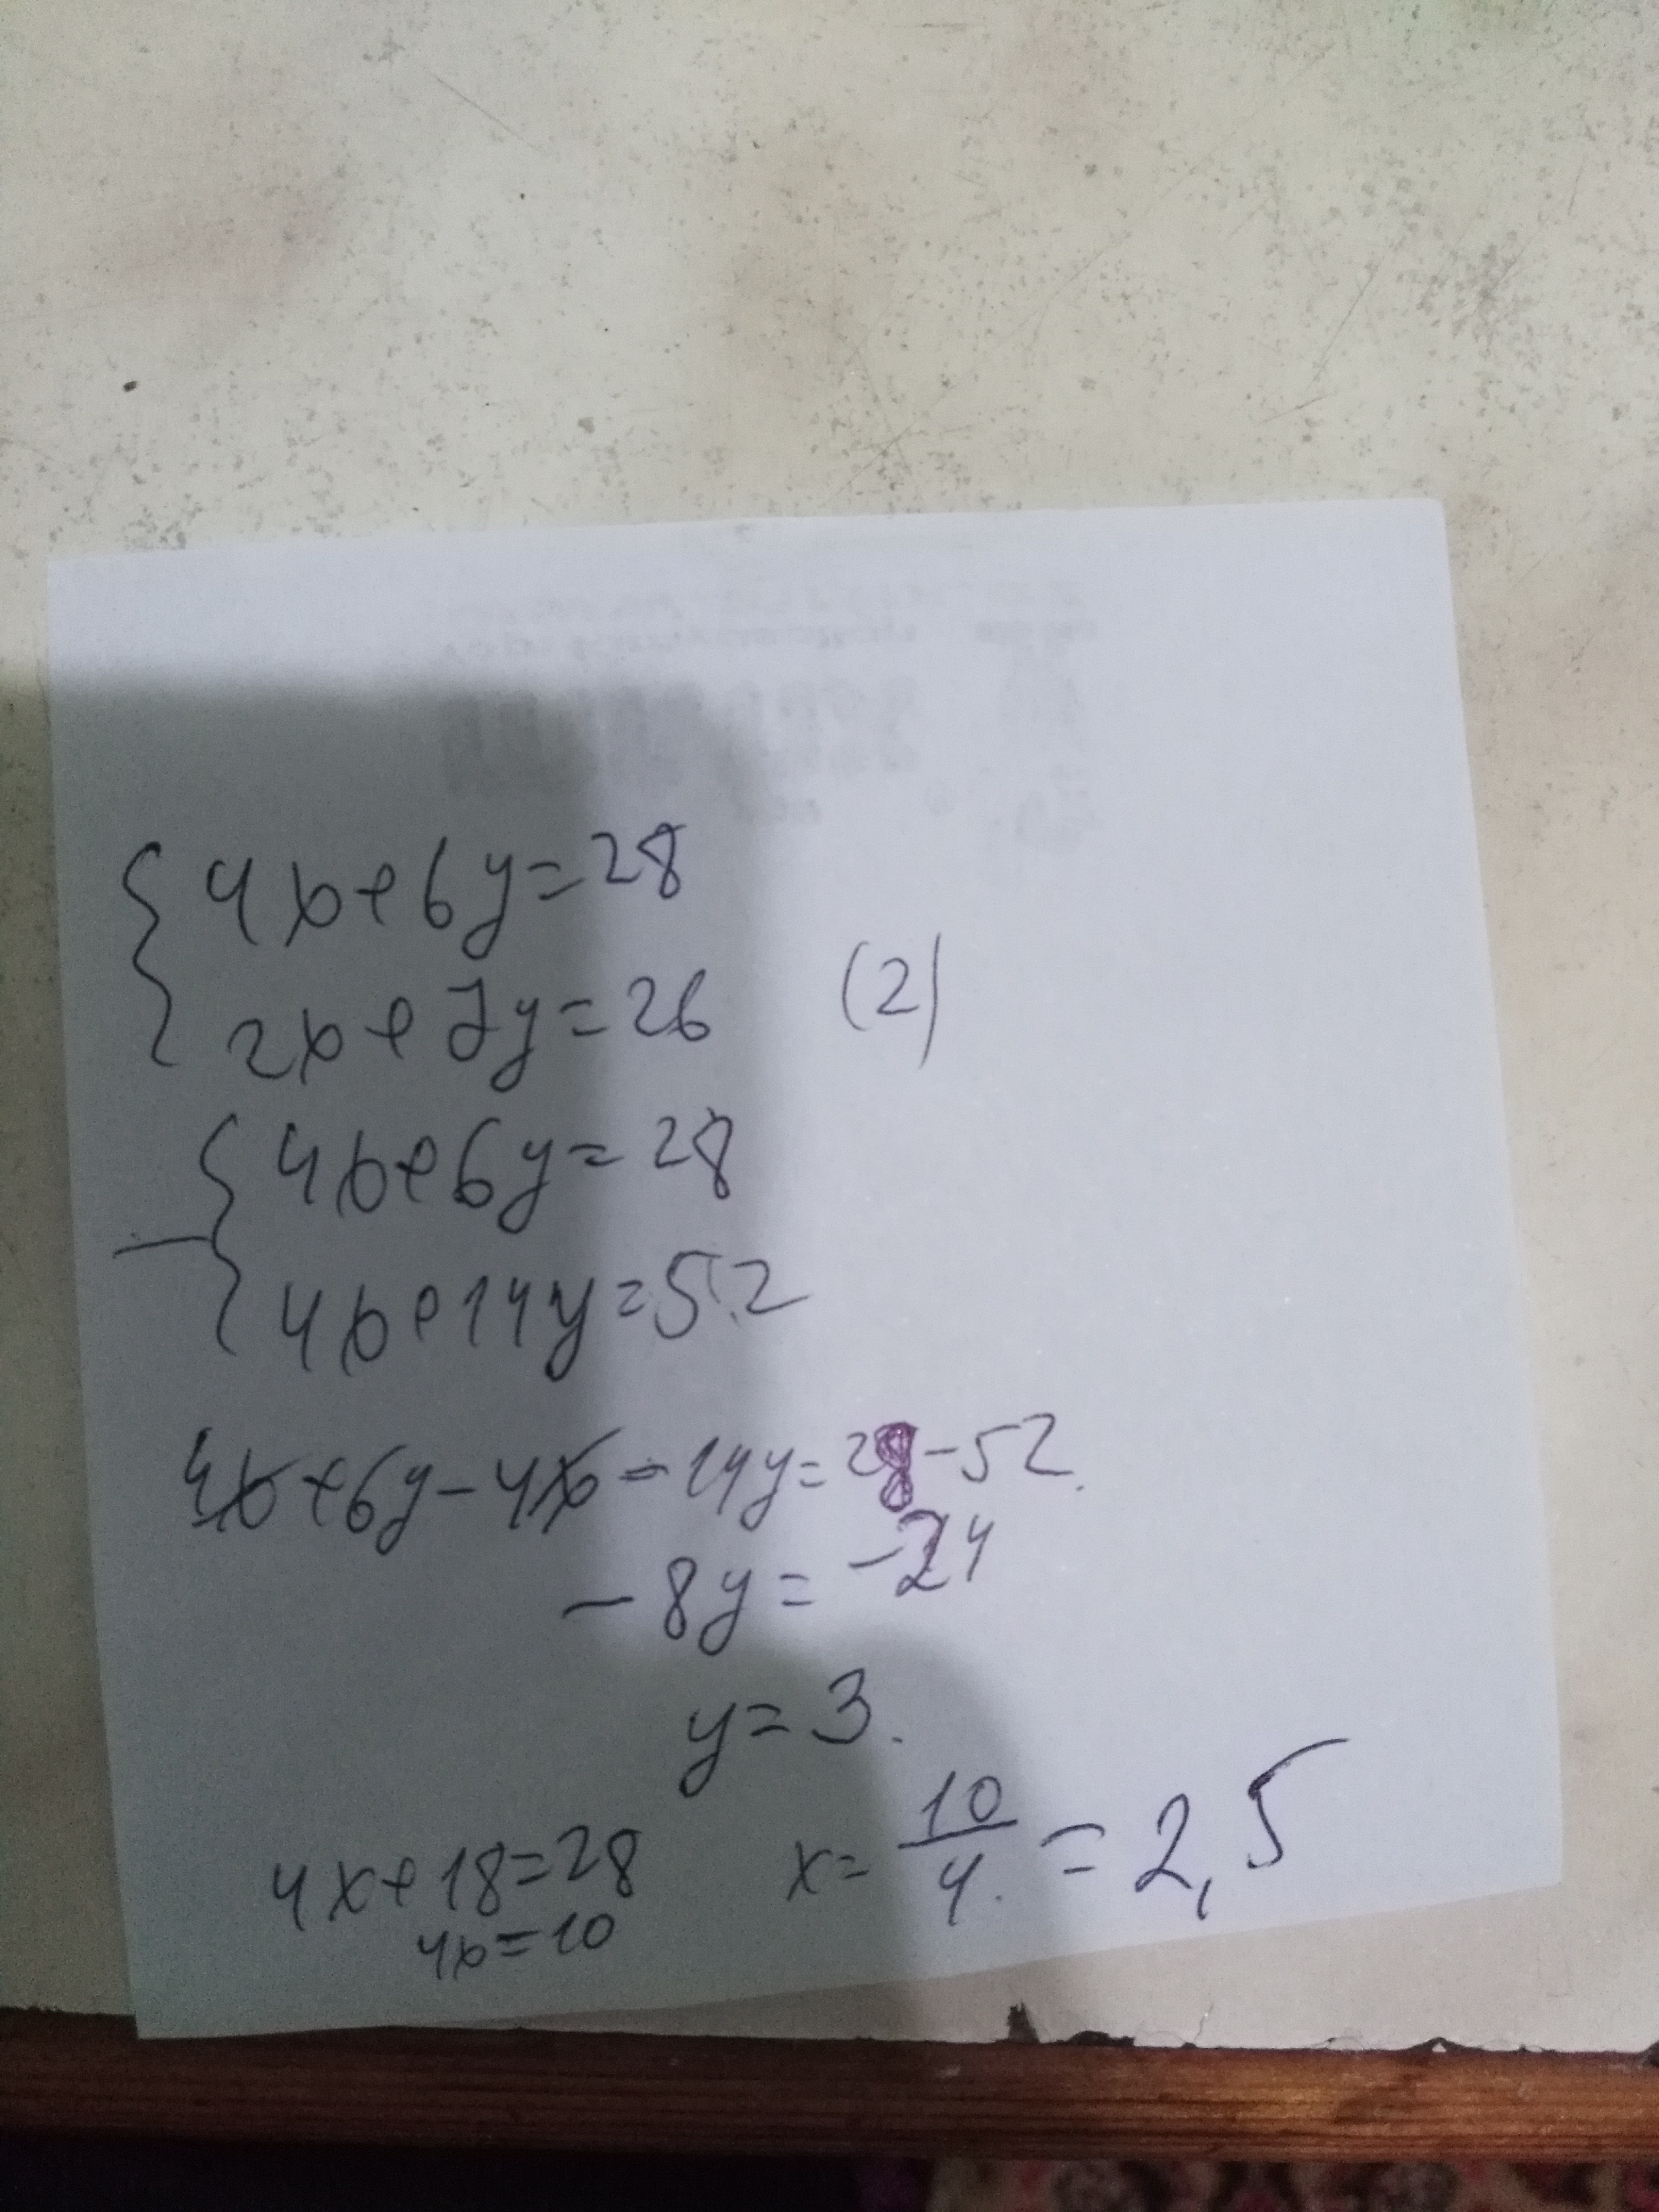 4x+6y=28
2x+7y=26 (2)
4x+6y=28
4x+14y=52
4x+6y-4x-14y=28-52
-8y=-24
y=3.
4x+18=28 x=10/4=2,5
4x=10